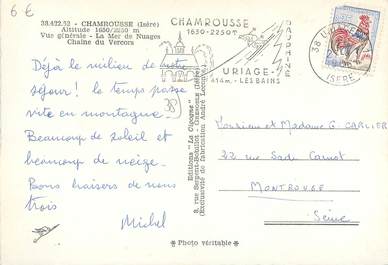 6 €
38.422.53 - CHAMROUSSE (Isère)
Altitude 1650/2250 m
Vue générale - La Mer de Nuages
Chaîne du Vercors
CHAMROUSSE
1650-2250 m
DAUPHINÉ
URIAGE-
414 m - LES BAINS
38
ISÈRE
Déjà le milieu de notre
séjour ! le temps passe
vite en montagne.
38
Beaucoup de soleil et
beaucoup de neige.
Bons baisers de nous
trois
Michel
Editions "La Cigogne"
(Exclusivité de fabrication André Leconte)
Monsieur et Madame G CARLIER
22 rue Sadi Carnot
MONTROUGE
Seine
Photo véritable